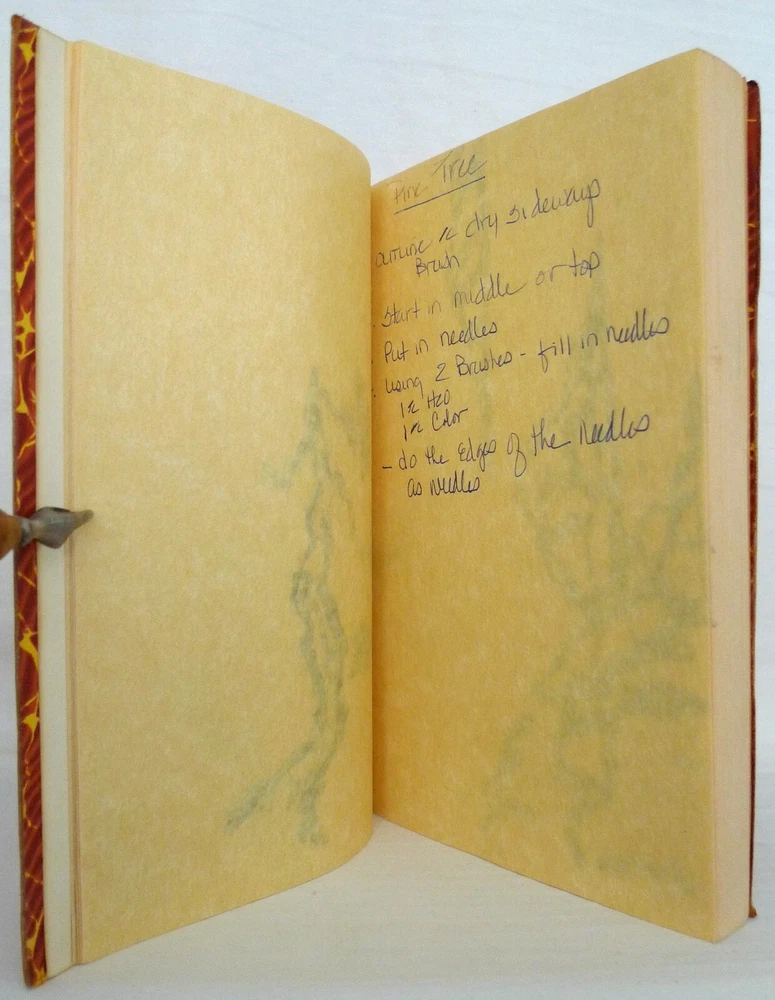 Pine Tree
outline c̄ dry sideways
Brush
- Start in middle or top
- Put in needles
- using 2 Brushes - fill in needles
1 c̄ H2O
1 c̄ Color
- do the Edges of the Needles
as needles